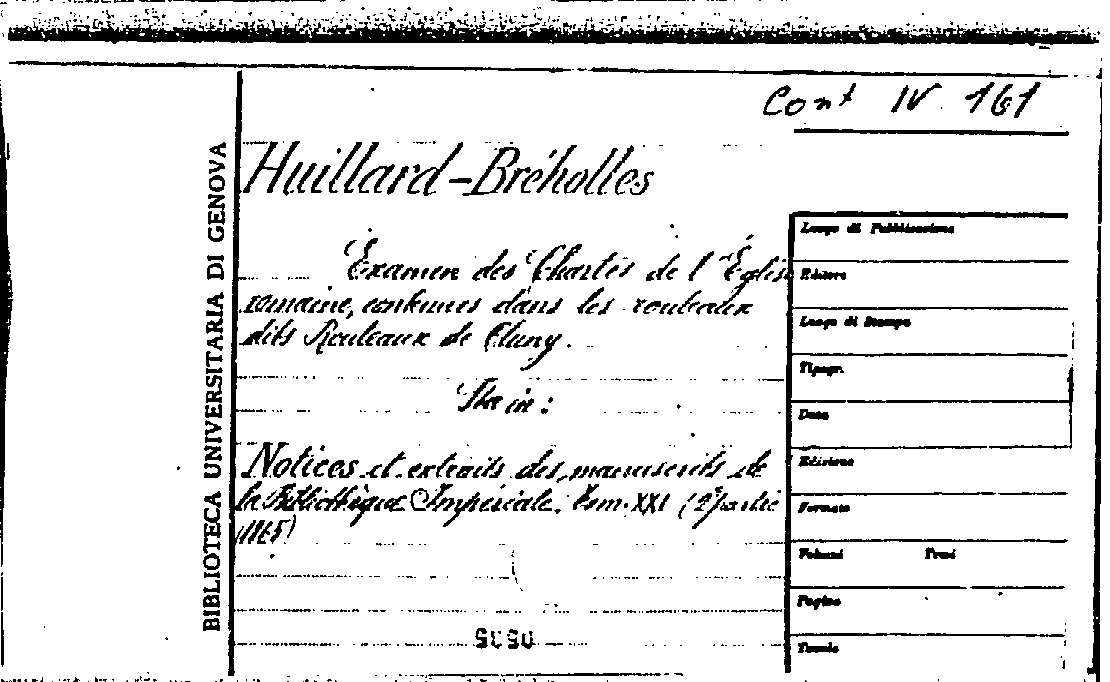 Cont IV 161
BIBLIOTECA UNIVERSITARIA DI GENOVA
Huillard-Bréholles
Examen des Chartes de l'Église
romaine, contenues dans les rouleaux
dits Rouleaux de Cluny.
Sta in:
Notices et extraits des manuscrits de
la Bibliothèque Impériale. Tom. XXI (2e partie
1865)
Luogo di Pubblicazione
Editore
Luogo di Stampa
Tipogr.
Data
Edizione
Formato
Volumi Pezzi
Pagine
Tavole